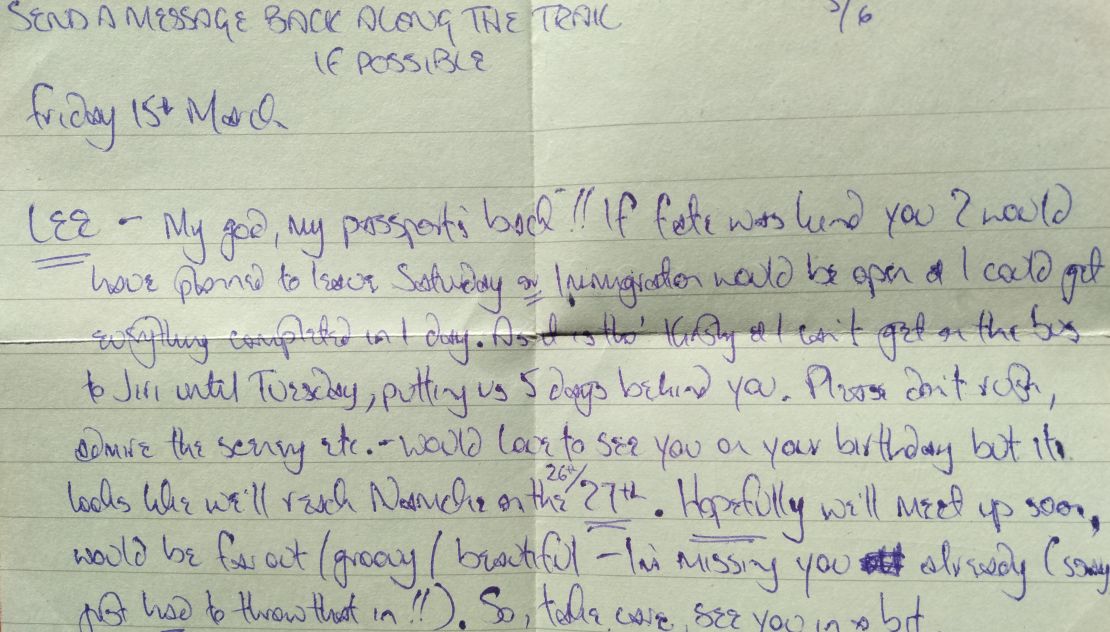 SEND A MESSAGE BACK ALONG THE TRAIL 5/6
IF POSSIBLE
Friday 15th March
LEE - My god, my passport's back!! If fate was kind you would
have planned to leave Saturday or Immigration would be open & I could get
everything completed in 1 day. As it is tho' Kirsty & I can't get on the bus
to Jiri until Tuesday, putting us 5 days behind you. Please don't rush,
admire the scenery etc. - would love to see you on your birthday but it
looks like we'll reach Namche on the 26th/27th. Hopefully we'll meet up soon,
would be far out / groovy / beautiful - I'm missing you already (sorry
just had to throw that in!!). So, take care, see you in a bit